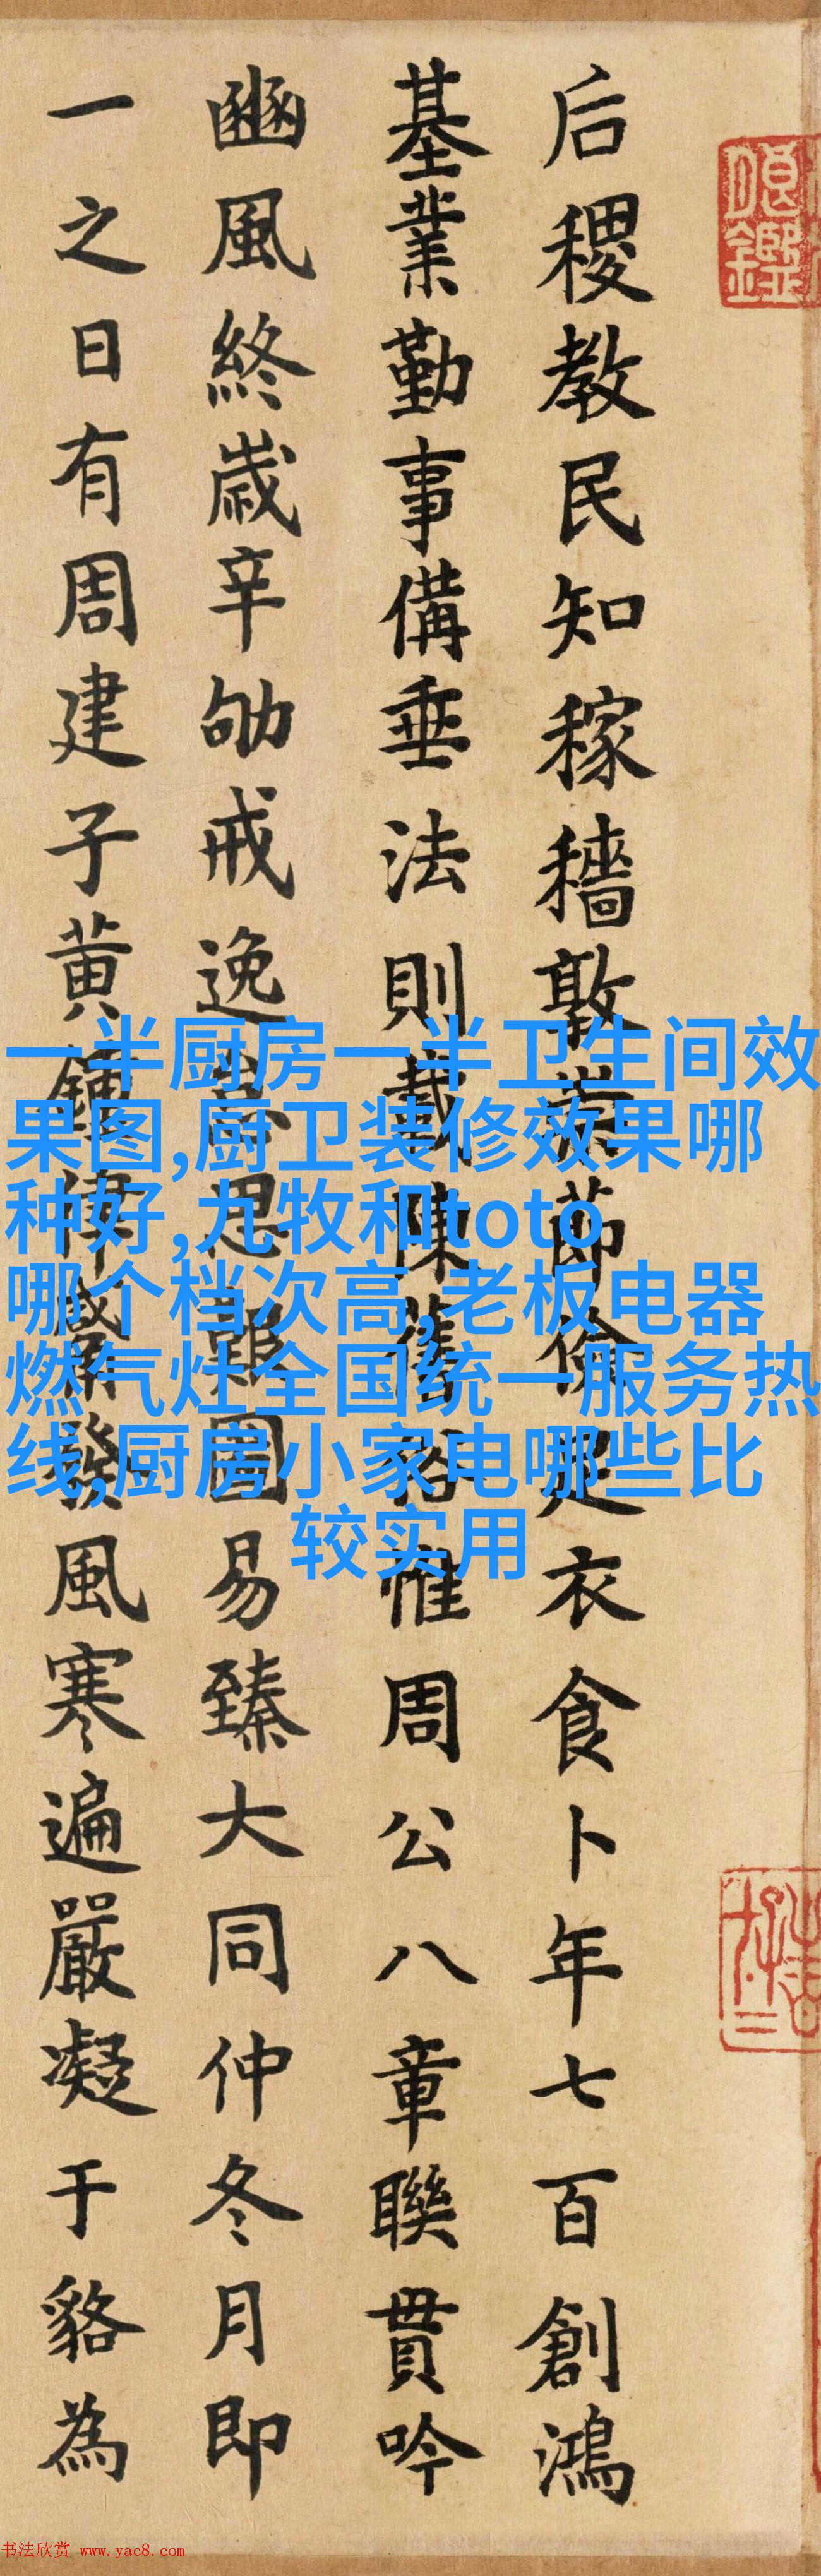 后稷教民知稼穡敦崇節儉足衣食卜年七百創鴻
基業勤事備垂法則載陳舊俗惟周公八章聯貫吟
豳風終歲辛劬戒逸思艱圖易臻大同仲冬月即
一之日有周建子黃鍾律觱發風寒遍嚴凝于貉為
一半厨房一半卫生间效
果图,厨卫装修效果哪
种好,九牧和toto
哪个档次高,老板电器
燃气灶全国统一服务热
线,厨房小家电哪些比
较实用
书法欣赏 www.yac8.com